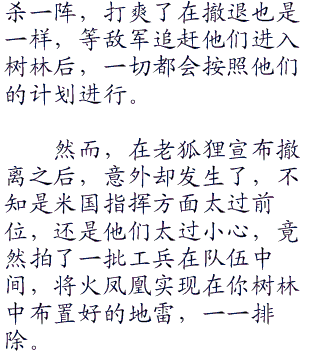 杀一阵，打爽了在撤退也是
一样，等敌军追赶他们进入
树林后，一切都会按照他们
的计划进行。
然而，在老狐狸宣布撤
离之后，意外却发生了，不
知是米国指挥方面太过前
位，还是他们太过小心，竟
然拍了一批工兵在队伍中
间，将火凤凰实现在你树林
中布置好的地雷，一一排
除。